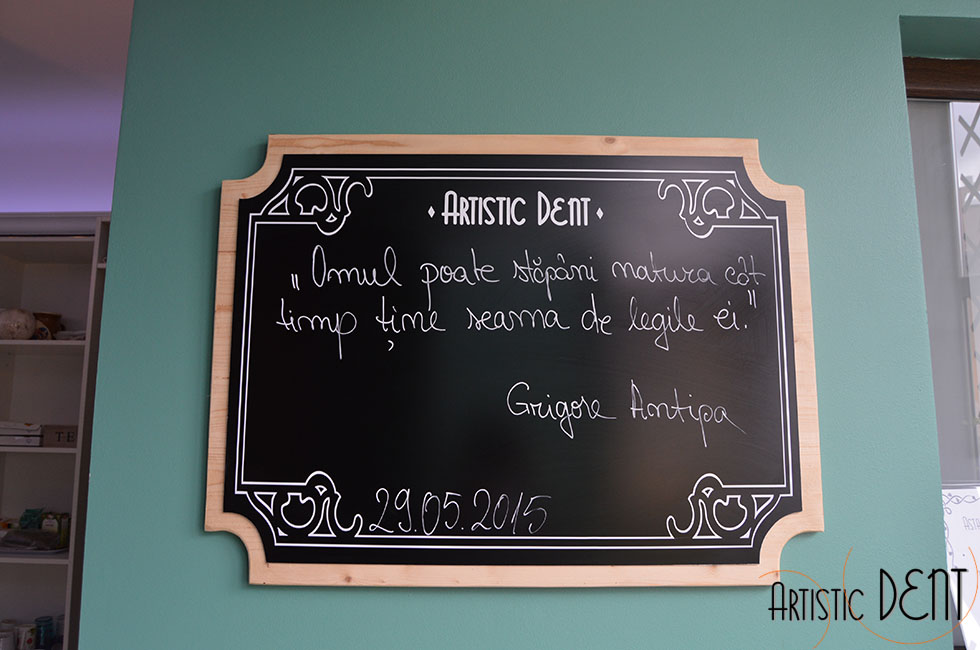 ARTISTIC DENT
„Omul poate stăpâni natura cât
timp ține seama de legile ei."
Grigore Antipa
29.05.2015
TE
ASTA
ARTISTIC DENT